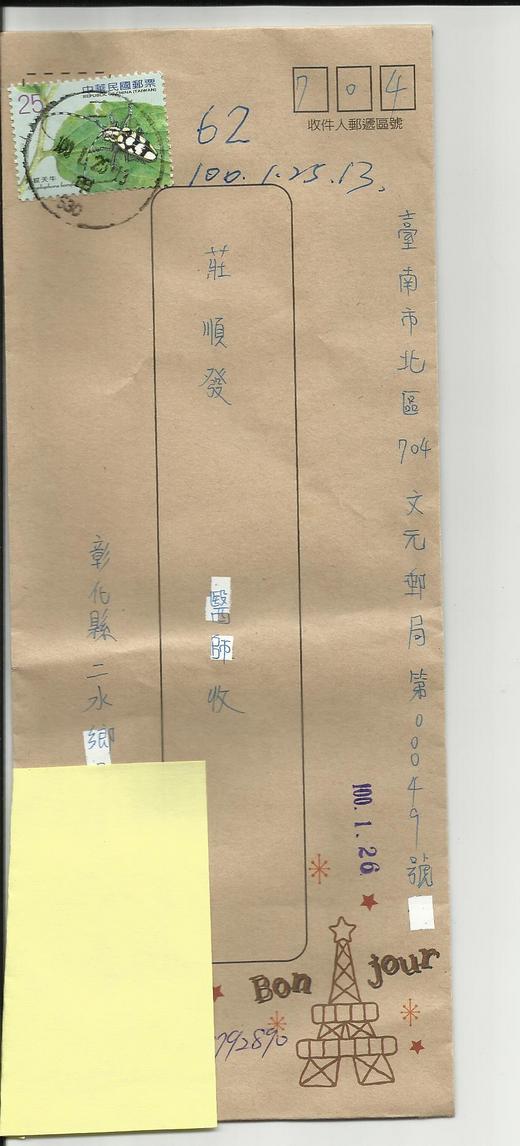 25
中華民國郵票
REPUBLIC OF CHINA (TAIWAN)
704
收件人郵遞區號
62
100.1.25.13.
臺南市北區704文元郵局第000049號
莊順發 醫師收
彰化縣二水鄉
100.1.26
Bon jour
792890